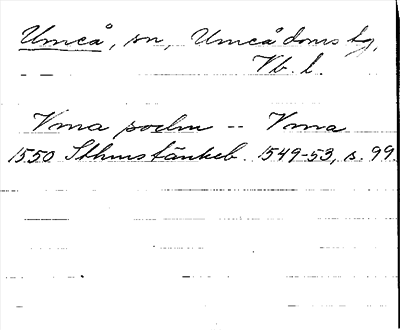 Umeå, sn, Umeå doms hg,
Vb. l.
Vma sochn -- Vma
1550 Sthms tänkeb. 1549-53, s. 99.